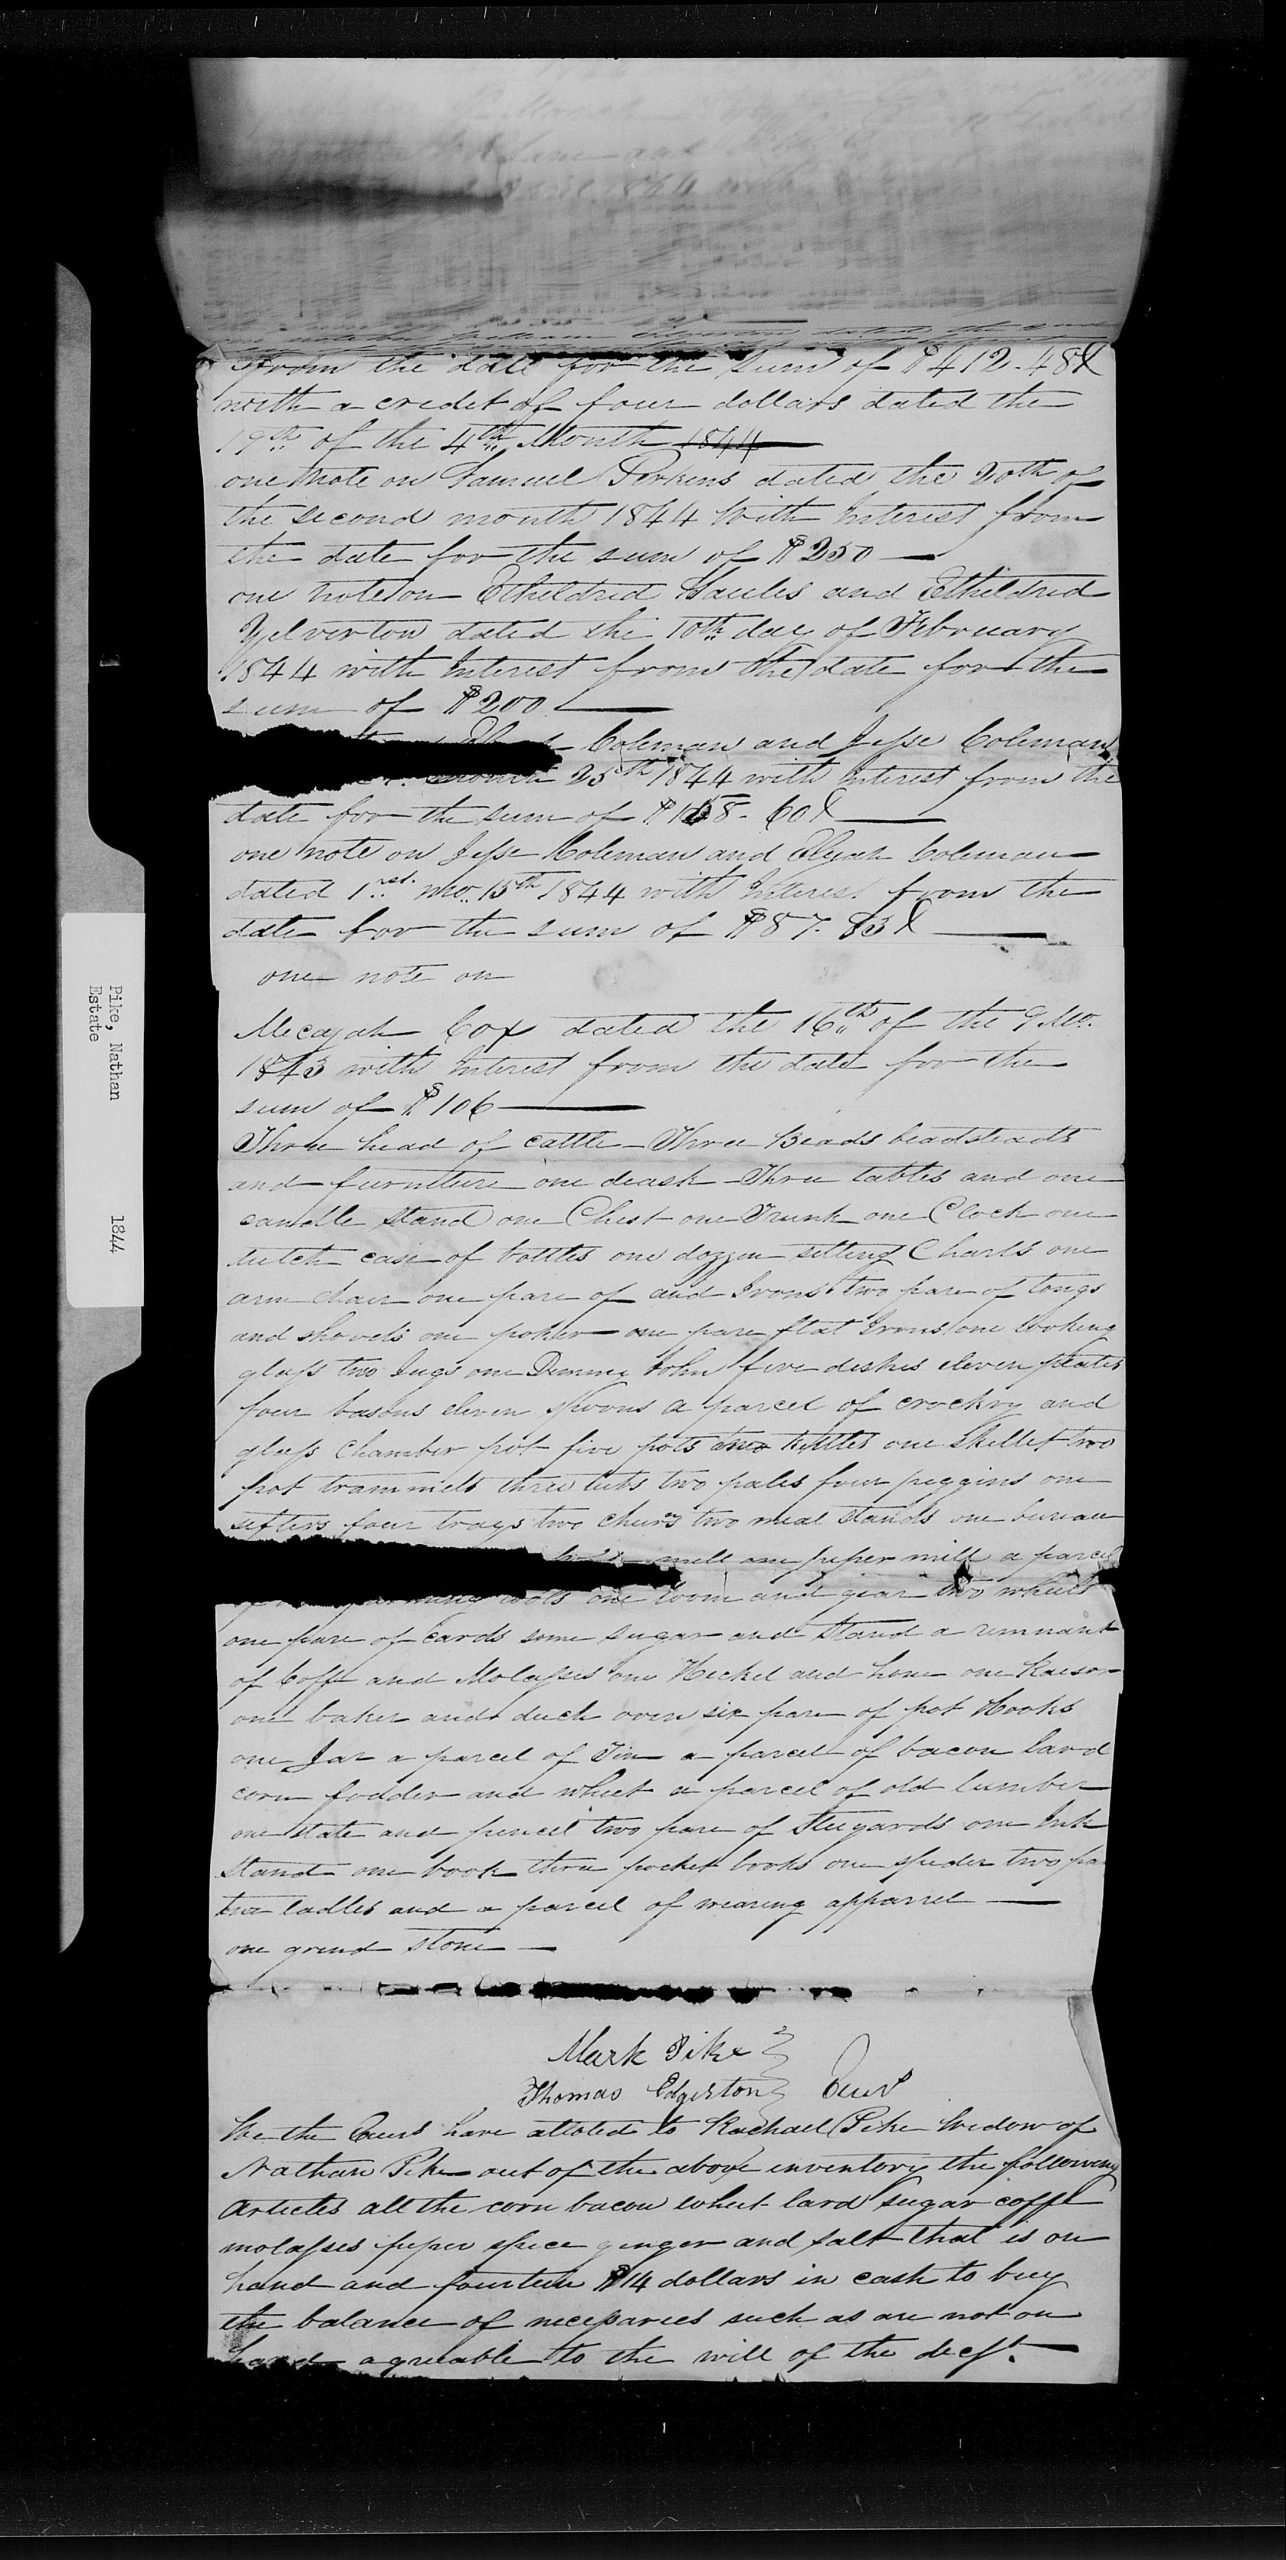 Pike, Nathan 1844
Estate
from the date for the sum of $412.48
with a credit of four dollars dated the
19th of the 4th Month 1844
one note on Samuel Perkins dated the 20th of
the second month 1844 with Interest from
the date for the sum of $250
one note on Etheldred Saules and Etheldred
Yelverton dated the 10th day of February
1844 with Interest from the date for the
sum of $200
Coleman and Jesse Coleman
month 25th 1844 with Interest from the
date for the sum of 60
one note on Jesse Coleman and Elijah Coleman
dated 1rst. mo. 15th 1844 with Interest from the
date for the sum of $87.83
one note on
Mecajah Cox dated the 16th of the 9 Mo.
1843 with Interest from the date for the
sum of $106
Three head of cattle Three Beads beadsteads
and furniture one deask Three tables and one
candle stand one Chest one Trunk one Clock one
dutch case of bottles one dozzen setting Chairs one
arm chair one pare of and Irons two pare of tongs
and shovels one poker one pare flat Irons one looking
glass two Jugs one Demme John five dishes eleven plates
four basons eleven spoons a parcel of crockry and
glass Chamber pot five pots two kittles one Skillet two
pot trammels three tubs two pales four peggins one
sifters four trays two churns two meal stands one bureau
mill one peper mill a parcel
tools one loom and gear two wheels
one pare of Cards some sugar and Stand a remnant
of Coffe and Molasses one Heckel and hone one Raisor
one baker and duch oven six pare of pot Hooks
one Jar a parcel of Tin a parcel of bacon lard
corn fodder and wheet a parcel of old lumber
one slate and pencil two pare of Steeyards one Ink
stand one book three pocket books one spider two
two ladles and a parcel of wearing apparrel
one grind stone
Mark Pike
Thomas Edgerton
We the have alloted to Rachael Pike Widow of
Nathan Pike out of the above inventory the following
Articles all the corn bacon wheet lard sugar coffe
molasses peper spice ginger and salt that is on
hand and fourteen $14 dollars in cash to buy
the balance of necesaries such as are not on
hand agreable to the will of the decst.